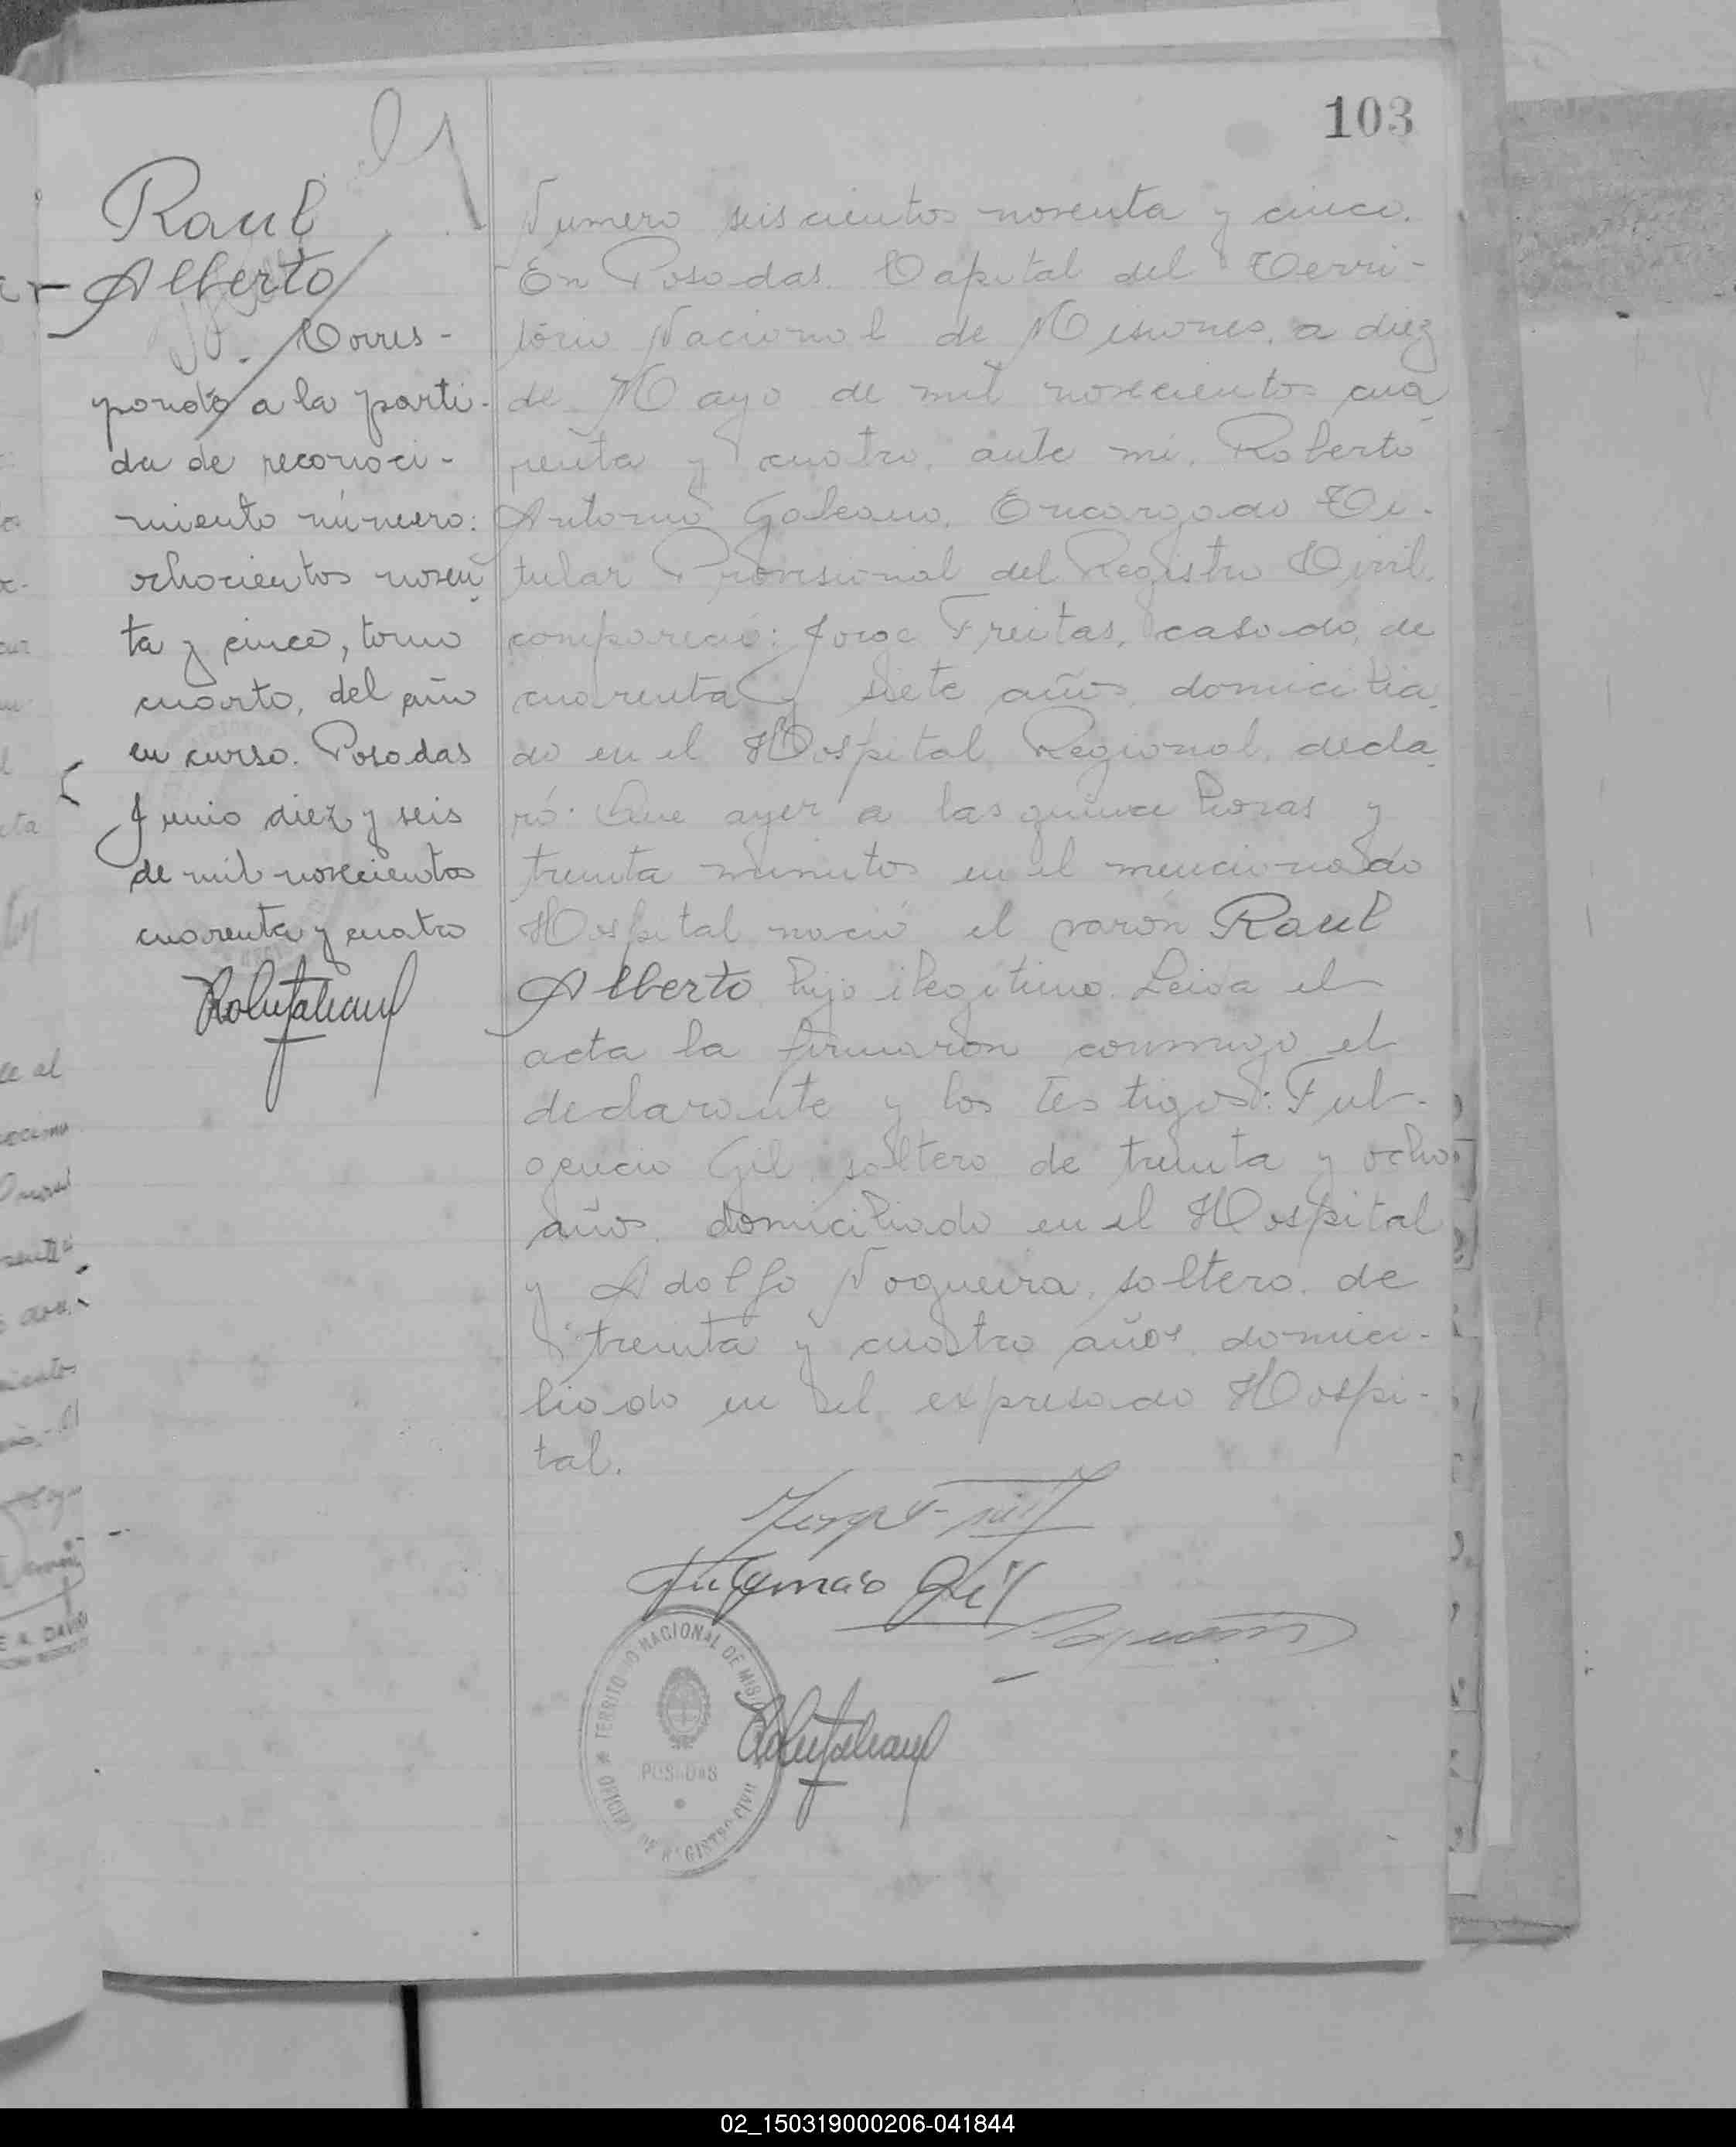 103
Raul
Alberto
Corres-
ponde a la parti-
da de reconoci-
miento número:
ochocientos noven
ta y cinco, tomo
cuarto, del año
en curso. Posadas
Junio diez y seis
de mil novecientos
cuarenta y cuatro
Numero seiscientos noventa y cinco.
En Posadas. Capital del Terri-
torio Nacional de Misiones, a diez
de Mayo de mil novecientos cua
renta y cuatro, ante mi, Roberto
Antonio Galeano, Encargado Ti-
tular Provisional del Registro Civil,
compareció: Jorge Freitas, casado, de
cuarenta y siete años, domicilia
do en el Hospital Regional, decla
ró: Que ayer a las quince horas y
treinta minutos en el mencionado
Hospital nació el varón Raul
Alberto hijo ilegitimo. Leida el
acta la firmaron conmigo el
declarante y los testigos: Ful-
gencio Gil, soltero, de treinta y ocho
años, domiciliado en el Hospital
y Adolfo Nogueira, soltero, de
treinta y cuatro años, domici-
liado en el expresado Hospi-
tal.
Fulgencio Gil
TERRITORIO NACIONAL DE MIS
POSADAS
OFICINA DE REGISTRO CIVIL
02_150319000206-041844